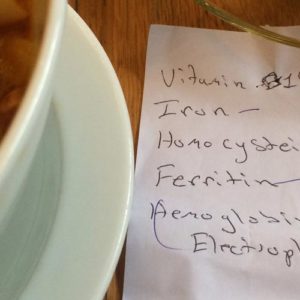 Vitamin B1
Iron -
Homocystei
Ferritin -
Haemoglobi
Electroph